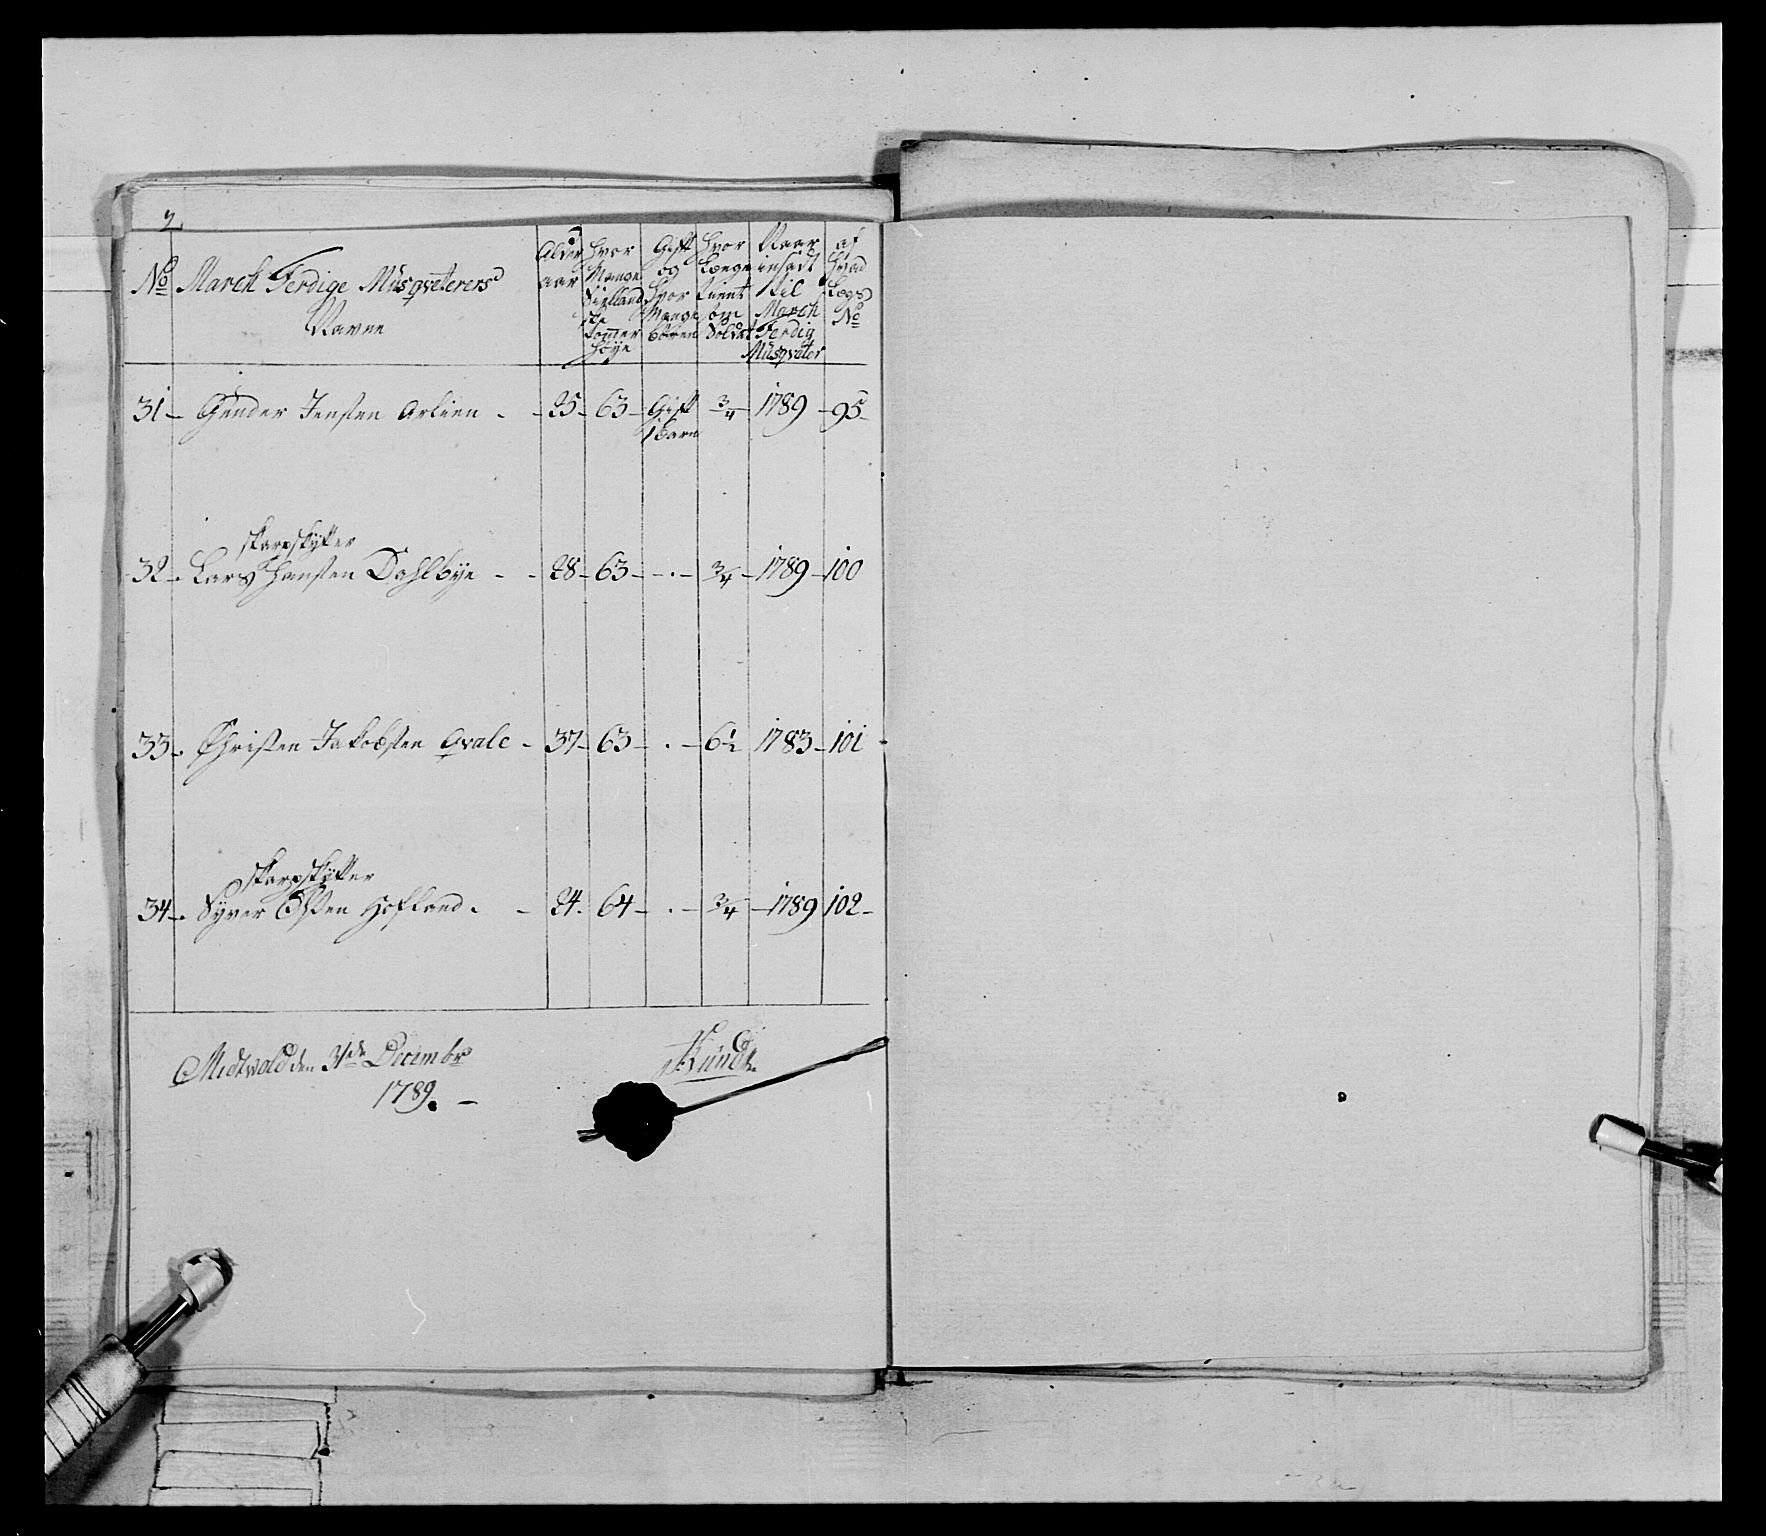 2
No March Ferdige Musqveterers Navne | Alder aar | Hvor Mange Siellandske tommer Høye | Gift og Hvor Mange Børen | Hvor Længe Tient som Soldat | Naar indsadt til March Ferdig Musqveter | af Hvad Lægs No
31 - Gunder Jensen Arlien - - 25 - 63 - Gift 1 barn - 3/4 - 1789 - 95 -
skarpskytter
32 - Lars Hansen Dahlbye - - 28 - 63 - - . - 3/4 - 1789 - 100
33 - Christen Jakobsen Qvale - 37 - 63 - . - 6 1/2 1783 - 101
skarpskytter
34 - Syver Olsen Hofland - - 24 . 64 - . - 3/4 - 1789 102 -
Midtvold den 31de Decembr
1789. -
Kundt.